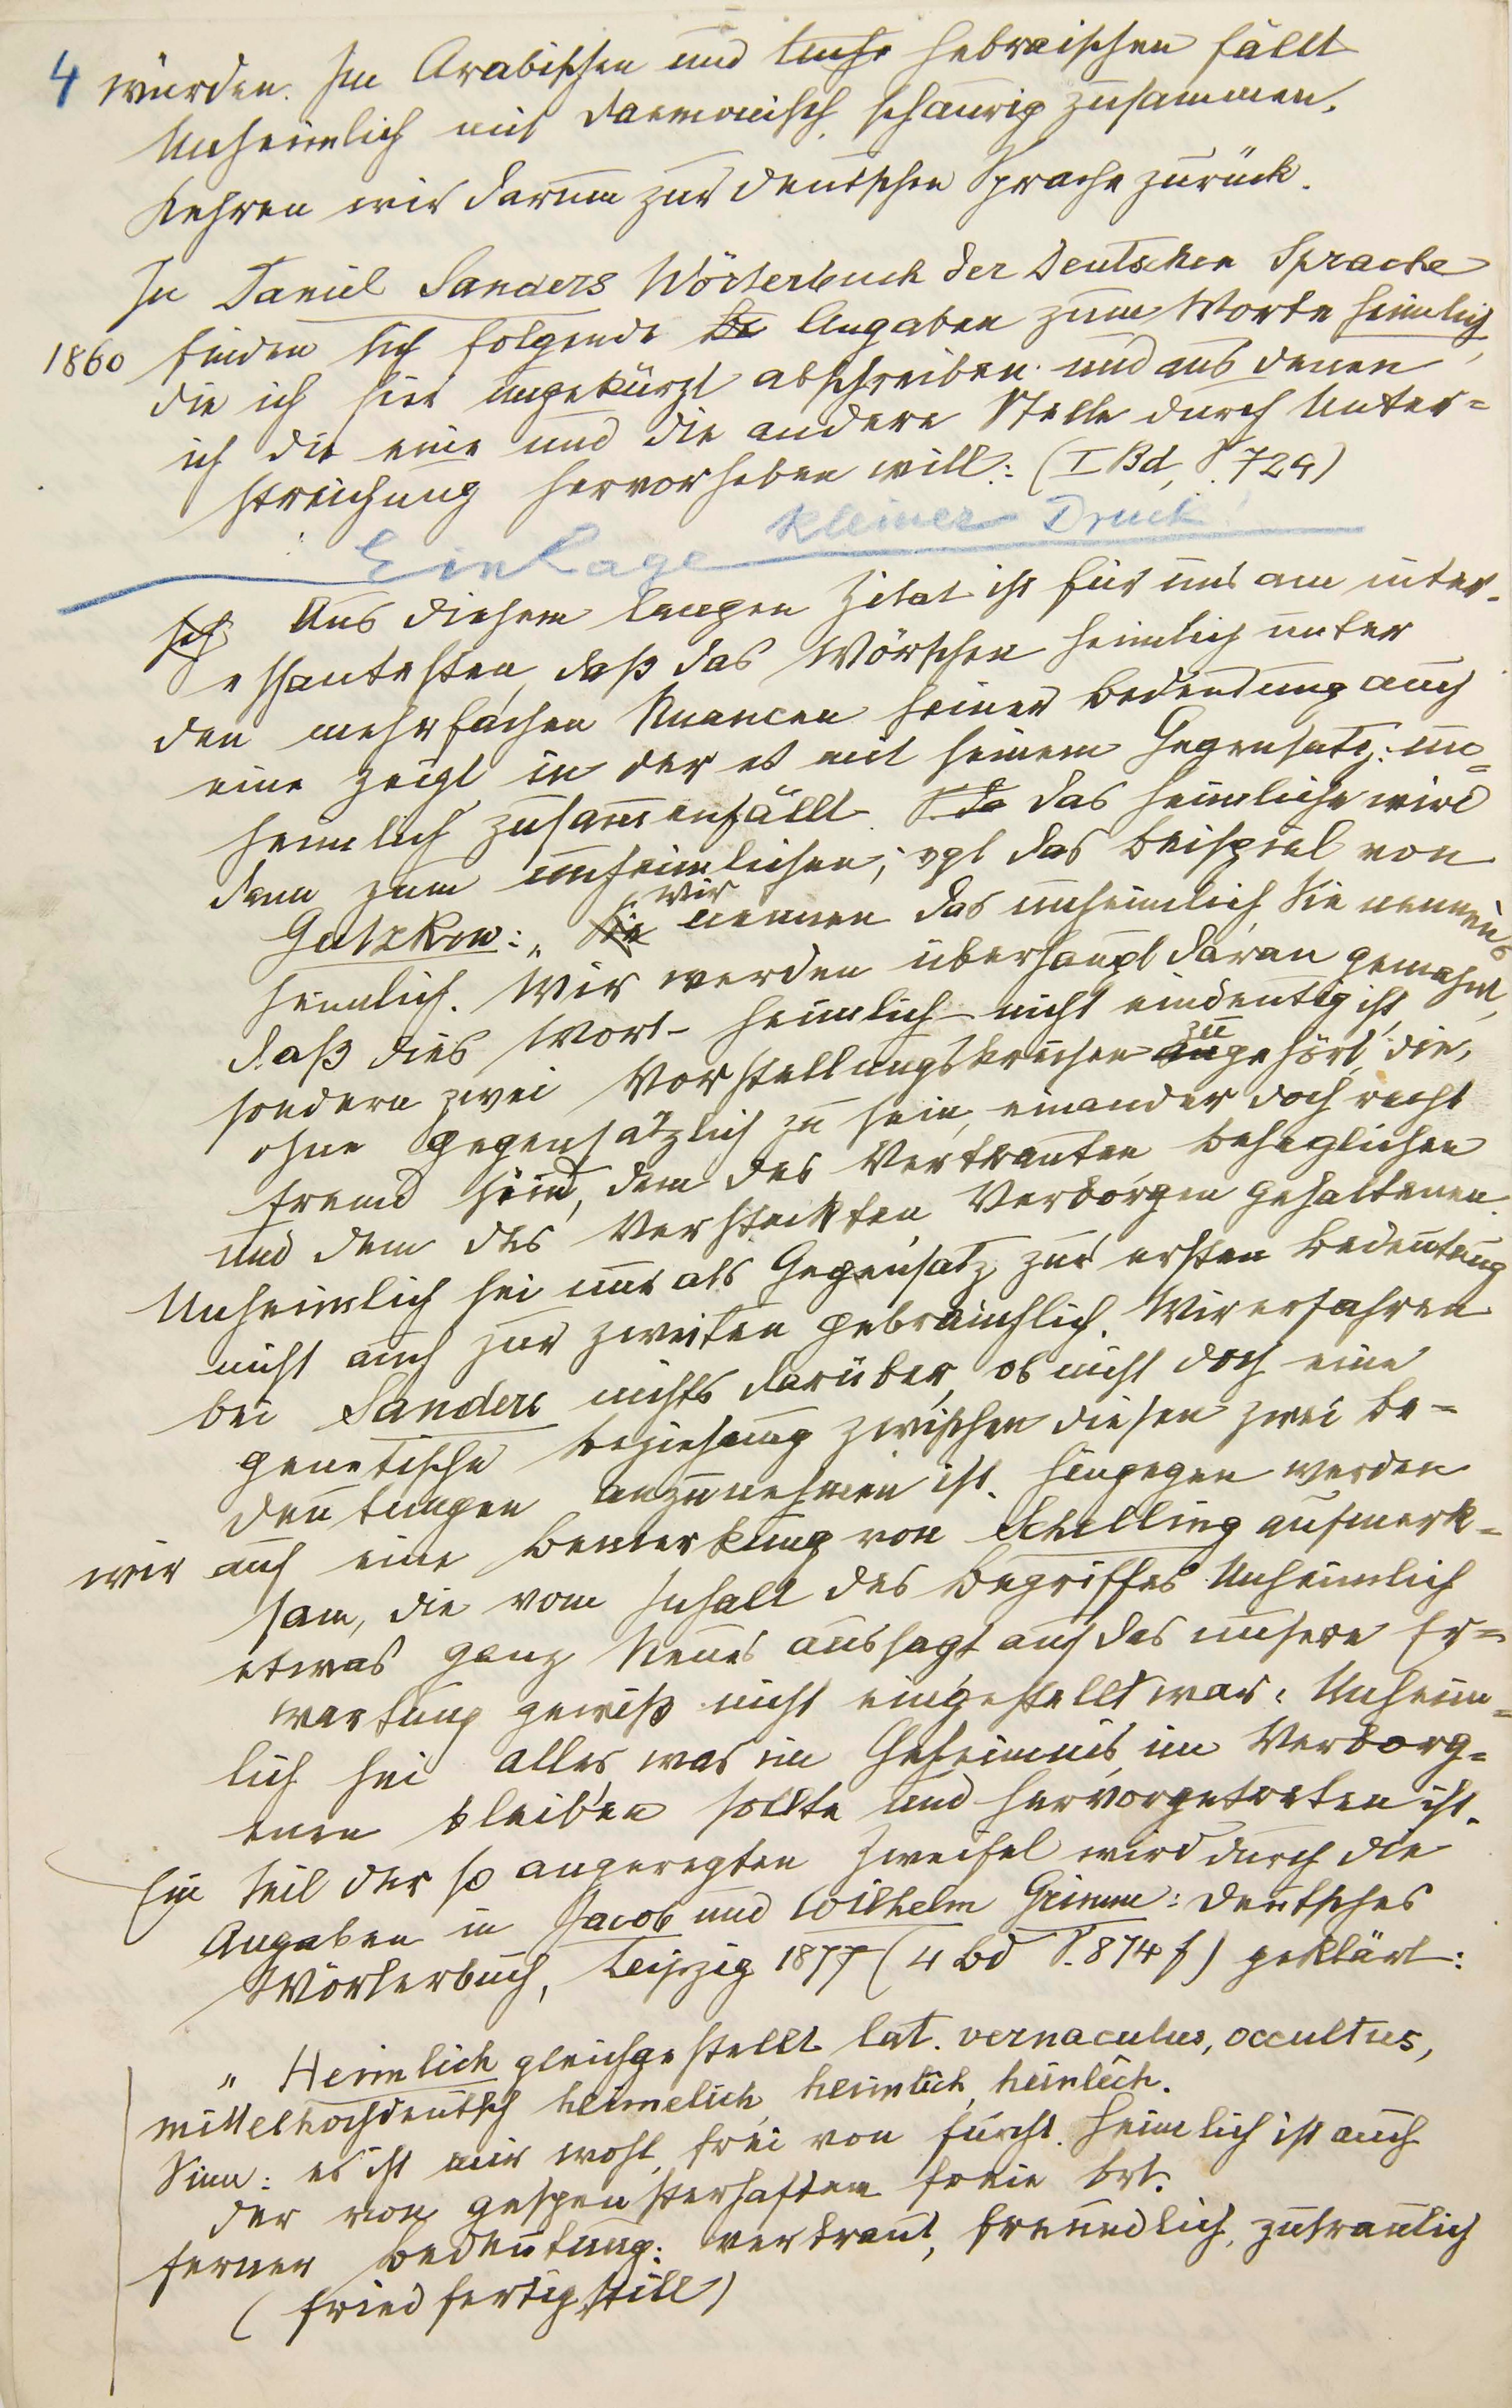 4 würden. Im Arabischen und Hebraeischen fällt
Unheimlich mit daemonisch, schaurig zusammen.
Kehren wir darum zur deutschen Sprache zurück.
In Daniel Sanders Wörterbuch der Deutschen Sprache
1860 finden sich folgende Angaben zum Worte heimlich,
die ich hier ungekürzt abschreiben und aus denen
ich die eine und die andere Stelle durch Unter=
streichung hervorheben will: (I Bd, S. 729)
Einlage kleiner Druck
Aus diesem langen Zitat ist für uns am inter-
essantesten, daß das Wörtchen heimlich unter
den mehrfachen Nuancen seiner Bedeutung auch
eine zeigt in der es mit seinem Gegensatz un=
heimlich zusammenfällt. das heimliche wird
dann zum unheimlichen; vgl das Beispiel von
Gutzkow: „ wir nennen das unheimlich, Sie nennen's
heimlich. Wir werden überhaupt daran gemahnt,
daß dies Wort heimlich nicht eindeutig ist,
sondern zwei Vorstellungskreisen zugehört, die,
ohne gegensätzlich zu sein, einander doch recht
fremd sind, dem des Vertrauten, Behaglichen
und dem des Versteckten, Verborgen gehaltenen.
Unheimlich sei nur als Gegensatz zur ersten Bedeutung
nicht auch zur zweiten gebräuchlich. Wir erfahren
bei Sanders nichts darüber, ob nicht doch eine
genetische Beziehung zwischen diesen zwei Be-
deutungen anzunehmen ist. Hingegen werden
wir auf eine Bemerkung von Schelling aufmerk-
sam, die vom Inhalt des Begriffes Unheimlich
etwas ganz Neues aussagt auf das unsere Er=
wartung gewiß nicht eingestellt war: Unheim=
lich sei alles was im Geheimnis, im Verborg=
enen bleiben sollte und hervorgetreten ist.
Ein Teil der so angeregten Zweifel wird durch die
Angaben in Jacob und Wilhelm Grimm: Deutsches
Wörterbuch, Leipzig 1877 (4 Bd S. 874 f) geklärt:
„ Heimlich gleichgestellt lat. vernaculus, occultus,
mittelhochdeutsch heimelich, heimlich, heinlich.
Sinn: es ist mir wohl, frei von Furcht. Heimlich ist auch
der von gespensterhaften freie Ort.
ferner Bedeutung: vertraut, freundlich, zutraulich
(friedfertig, still)